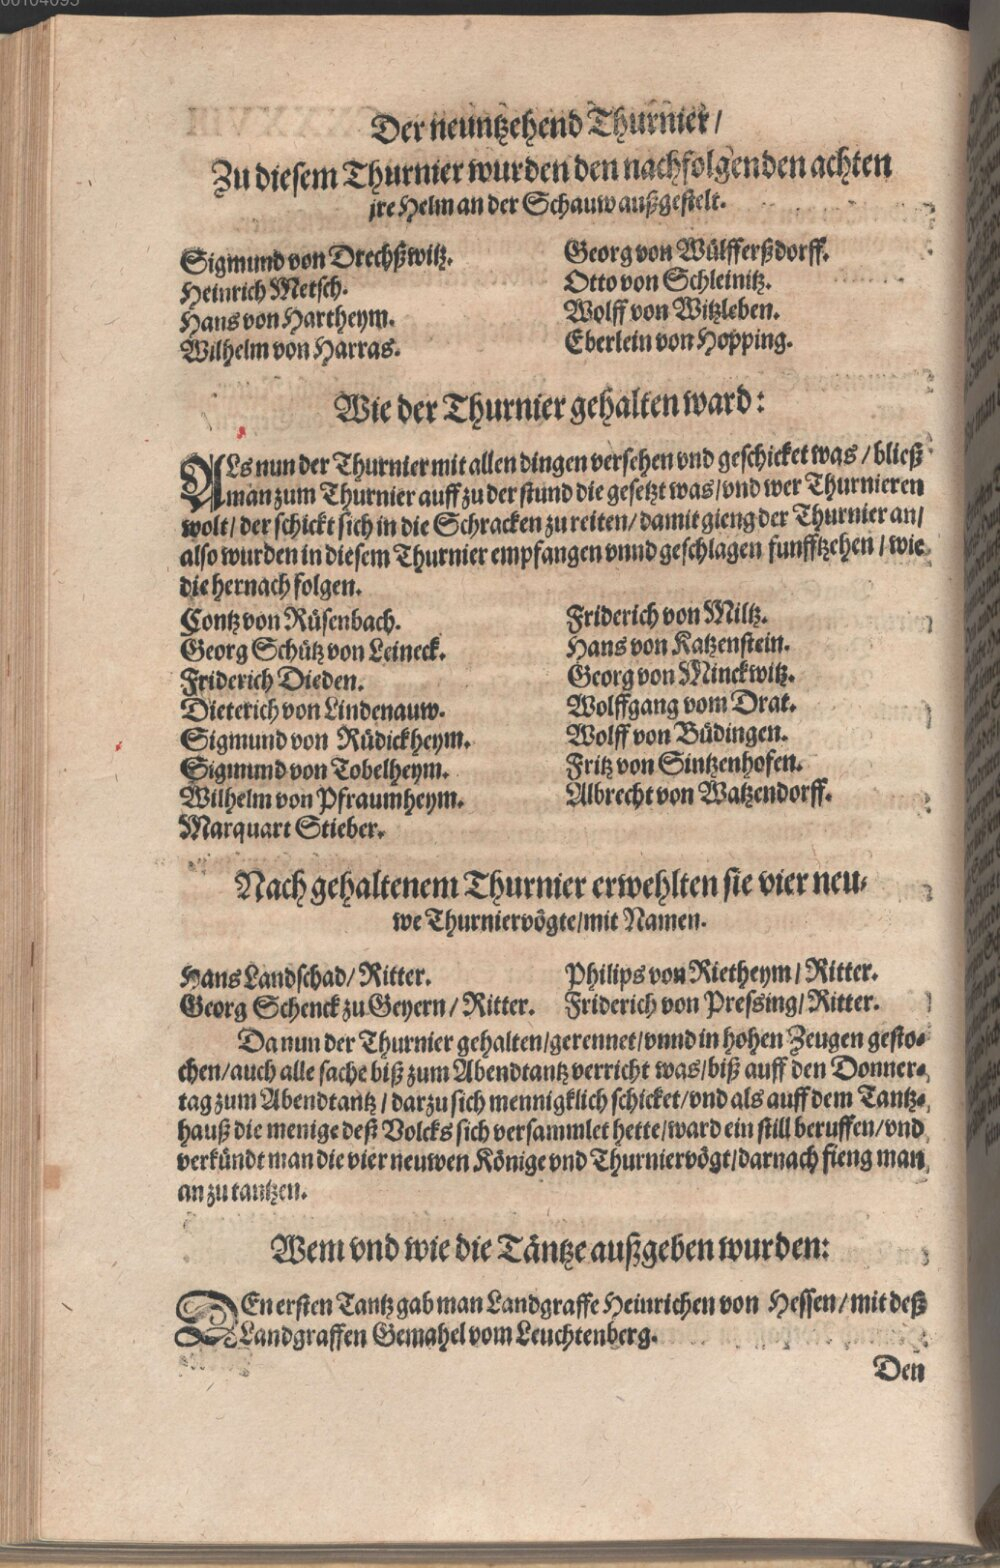 Der neuntzehend Thurnier /
Zu diesem Thurnier wurden den nachfolgenden achten
jre Helm an der Schauw außgestelt.
Sigmund von Drechßwitz.
Heinrich Metsch.
Hans von Hartheym.
Wilhelm von Harras.
Georg von Wülfferßdorff.
Otto von Schleinitz.
Wolff von Witzleben.
Eberlein von Hopping.
Wie der Thurnier gehalten ward:
ALs nun der Thurnier mit allen dingen versehen vnd geschicket was / bließ
man zum Thurnier auff zu der stund die gesetzt was / vnd wer Thurnieren
wolt / der schickt sich in die Schracken zu reiten / damit gieng der Thurnier an /
also wurden in diesem Thurnier empfangen vnnd geschlagen funfftzehen / wie
die hernach folgen.
Contz von Rüsenbach.
Georg Schütz von Leineck.
Friderich Dieden.
Dieterich von Lindenauw.
Sigmund von Rüdickheym.
Sigmund von Tobelheym.
Wilhelm von Pfraumheym.
Marquart Stieber.
Friderich von Miltz.
Hans von Katzenstein.
Georg von Minckwitz.
Wolffgang vom Drat.
Wolff von Büdingen.
Fritz von Sintzenhofen.
Albrecht von Watzendorff.
Nach gehaltenem Thurnier erwehlten sie vier neu-
we Thurniervögte / mit Namen.
Hans Landschad / Ritter.
Georg Schenck zu Geyern / Ritter.
Philips von Rietheym / Ritter.
Friderich von Pressing / Ritter.
Da nun der Thurnier gehalten / gerennet / vnnd in hohen Zeugen gesto-
chen / auch alle sache biß zum Abendtantz verricht was / biß auff den Donner-
tag zum Abendtantz / darzu sich mennigklich schicket / vnd als auff dem Tantz-
hauß die menige deß Volcks sich versammlet hette / ward ein still beruffen / vnd
verkündt man die vier neuwen Könige vnd Thurniervögt / darnach fieng man
an zu tantzen.
Wem vnd wie die Täntze außgeben wurden:
DEn ersten Tantz gab man Landgraffe Heinrichen von Hessen / mit deß
Landgraffen Gemahel vom Leuchtenberg.
Den